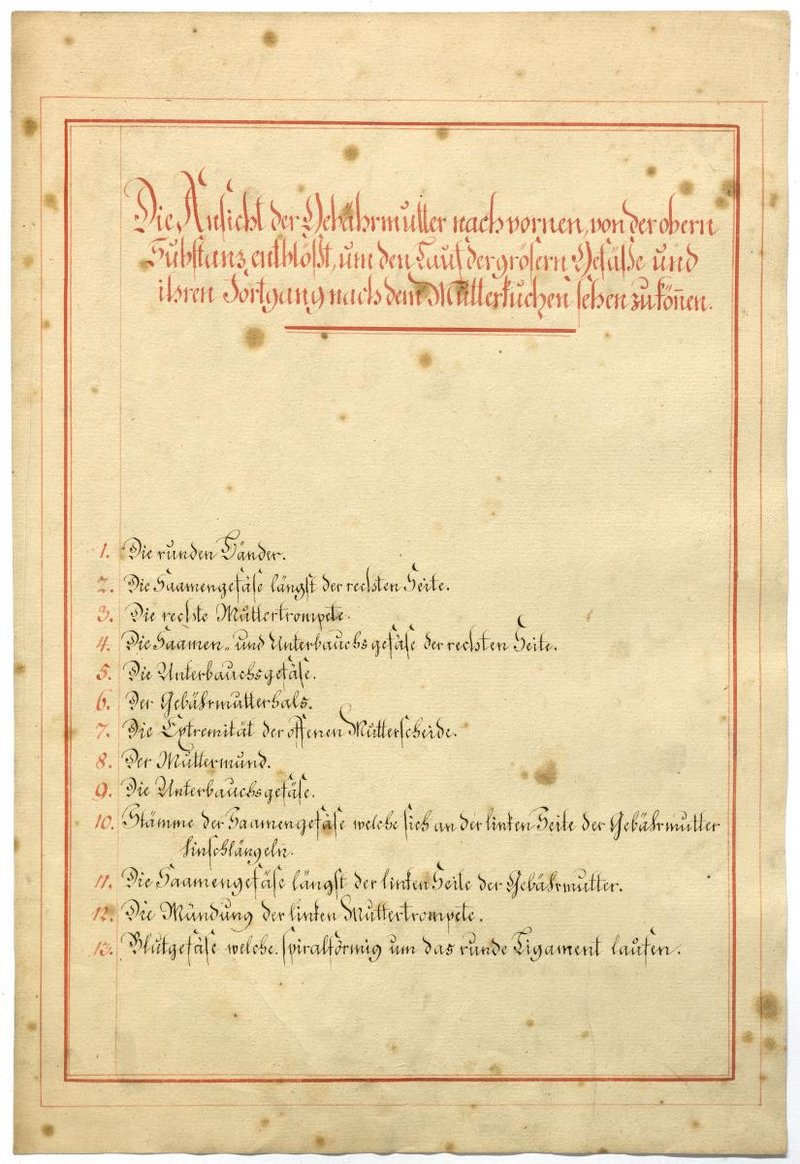 Die Ansicht der Gebährmutter nach vornen, von der obern
Substanz entblößt, um den Lauf der grösern Gefäße und
ihren Fortgang nach dem Mutterkuchen sehen zu könn̄en.
1. Die runden Bänder.
2. Die Saamengefäse längst der rechten Seite.
3. Die rechte Muttertrompete.
4. Die Saamen- und Unterbauchsgefäse der rechten Seite.
5. Die Unterbauchsgefäse.
6. Der Gebährmutterhals.
7. Die Extremität der offenen Mutterscheide.
8. Der Muttermund.
9. Die Unterbauchsgefäse.
10. Stämme der Saamengefäse welche sich an der linken Seite der Gebährmutter
hinschlängeln.
11. Die Saamengefäse längst der linken Seite der Gebährmutter.
12. Die Mündung der linken Muttertrompete.
13. Blutgefäse welche spiralförmig um das runde Ligament laufen.